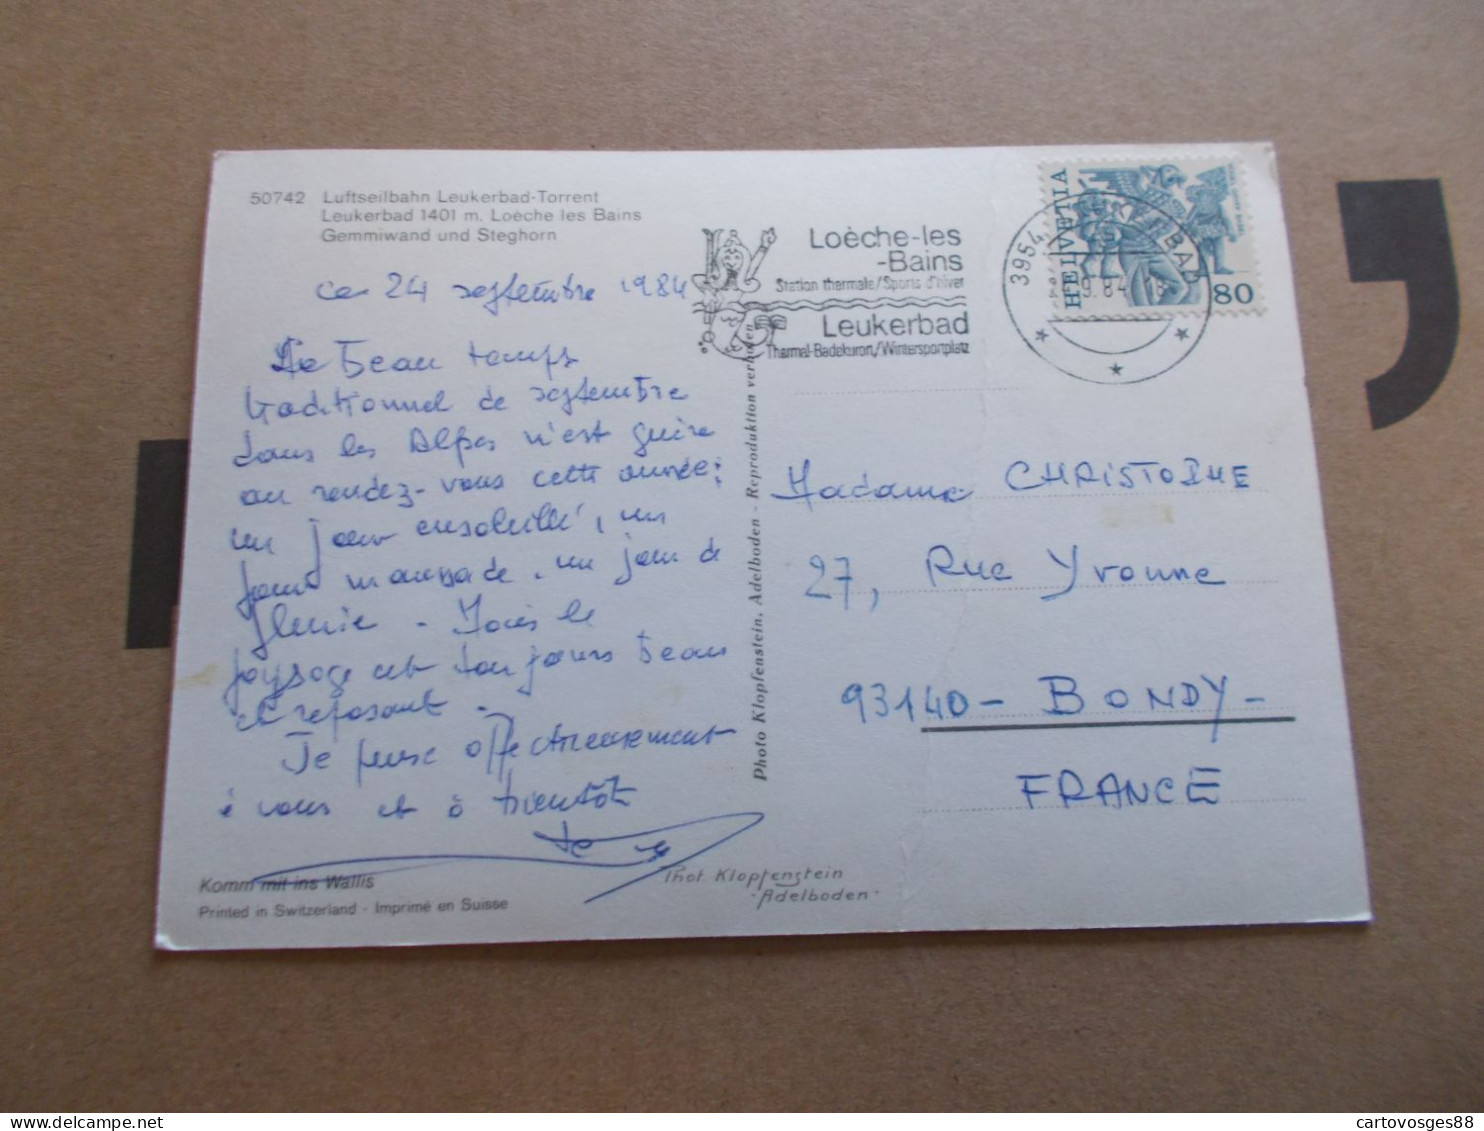 50742 Luftseilbahn Leukerbad-Torrent
Leukerbad 1401 m. Loèche les Bains
Gemmiwand und Steghorn
ce 24 septembre 1984
Le beau temps
traditionnel de septembre
dans les Alpes n'est guère
au rendez-vous cette année:
un jour ensoleillé, un
jour maussade, un jour de
pluie - Mais le
paysage est toujours beau
et reposant -
Je pense affectueusement
à vous et à bientôt
Komm mit ins Wallis
Printed in Switzerland - Imprimé en Suisse
Photo Klopfenstein, Adelboden - Reproduktion verboten
Phot. Klopfenstein
- Adelboden -
Loèche-les
-Bains
Station thermale/Sports d'hiver
Leukerbad
Thermal-Badekurort/Wintersportplatz
3954
BAD
9.84
HELVETIA
80
Madame CHRISTOPHE
27, Rue Yvonne
93140 - BONDY -
FRANCE
cartovosges88